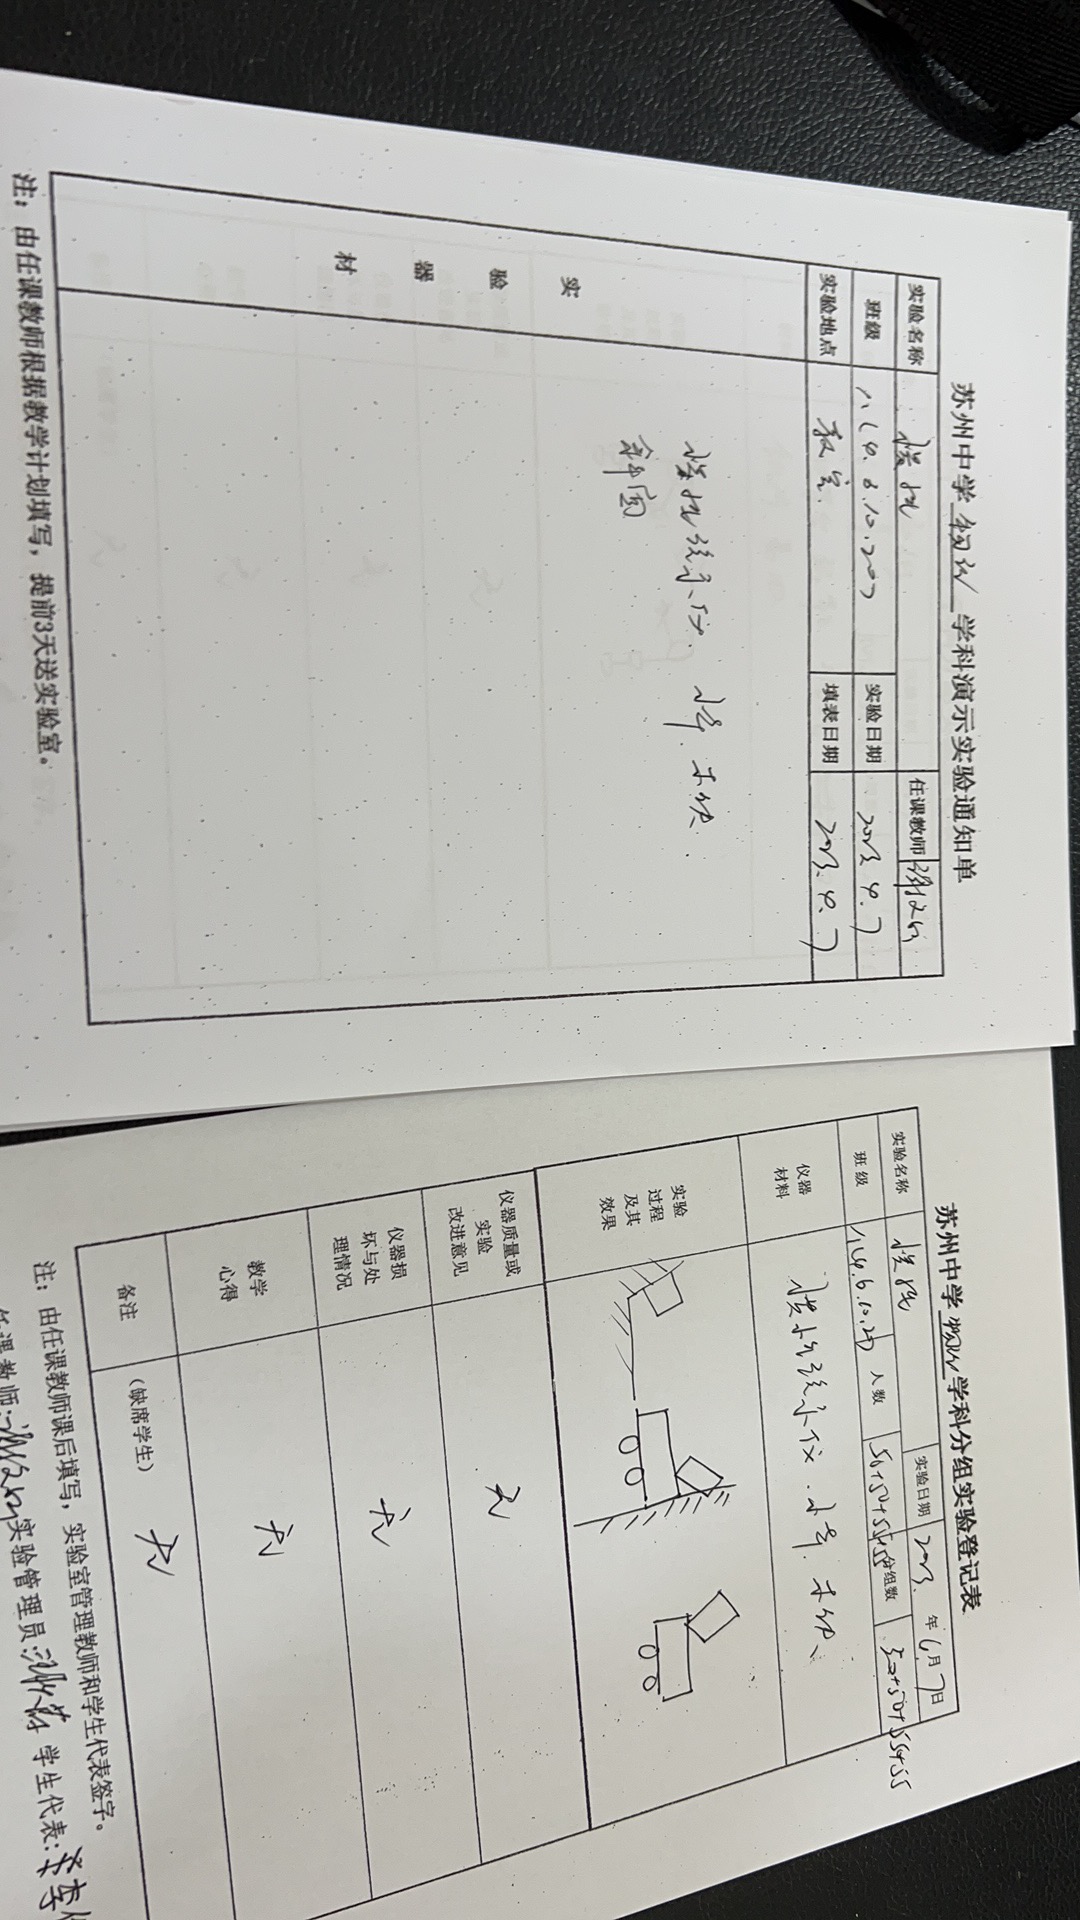 苏州中学 物理 学科演示实验通知单
实验名称 惯性 任课教师
班级 八(4.6.10.20) 实验日期 2023.4.7
实验地点 教室 填表日期 2023.4.7
实验器材 惯性演示仪. 小车. 木块.
注：由任课教师根据教学计划填写，提前3天送实验室。
苏州中学 物理 学科分组实验登记表
实验名称 惯性 实验日期 2023. 年 月7日
班级 人数 50+50+55+55 分组数 50+50+55+55
仪器材料 惯性演示仪. 小车. 木块、
实验过程及其效果
仪器质量或实验改进意见 无
仪器损坏与处理情况 无
教学心得 无
备注 (缺席学生) 无
注：由任课教师课后填写，实验室管理教师和学生代表签字。
实验管理员: 学生代表: